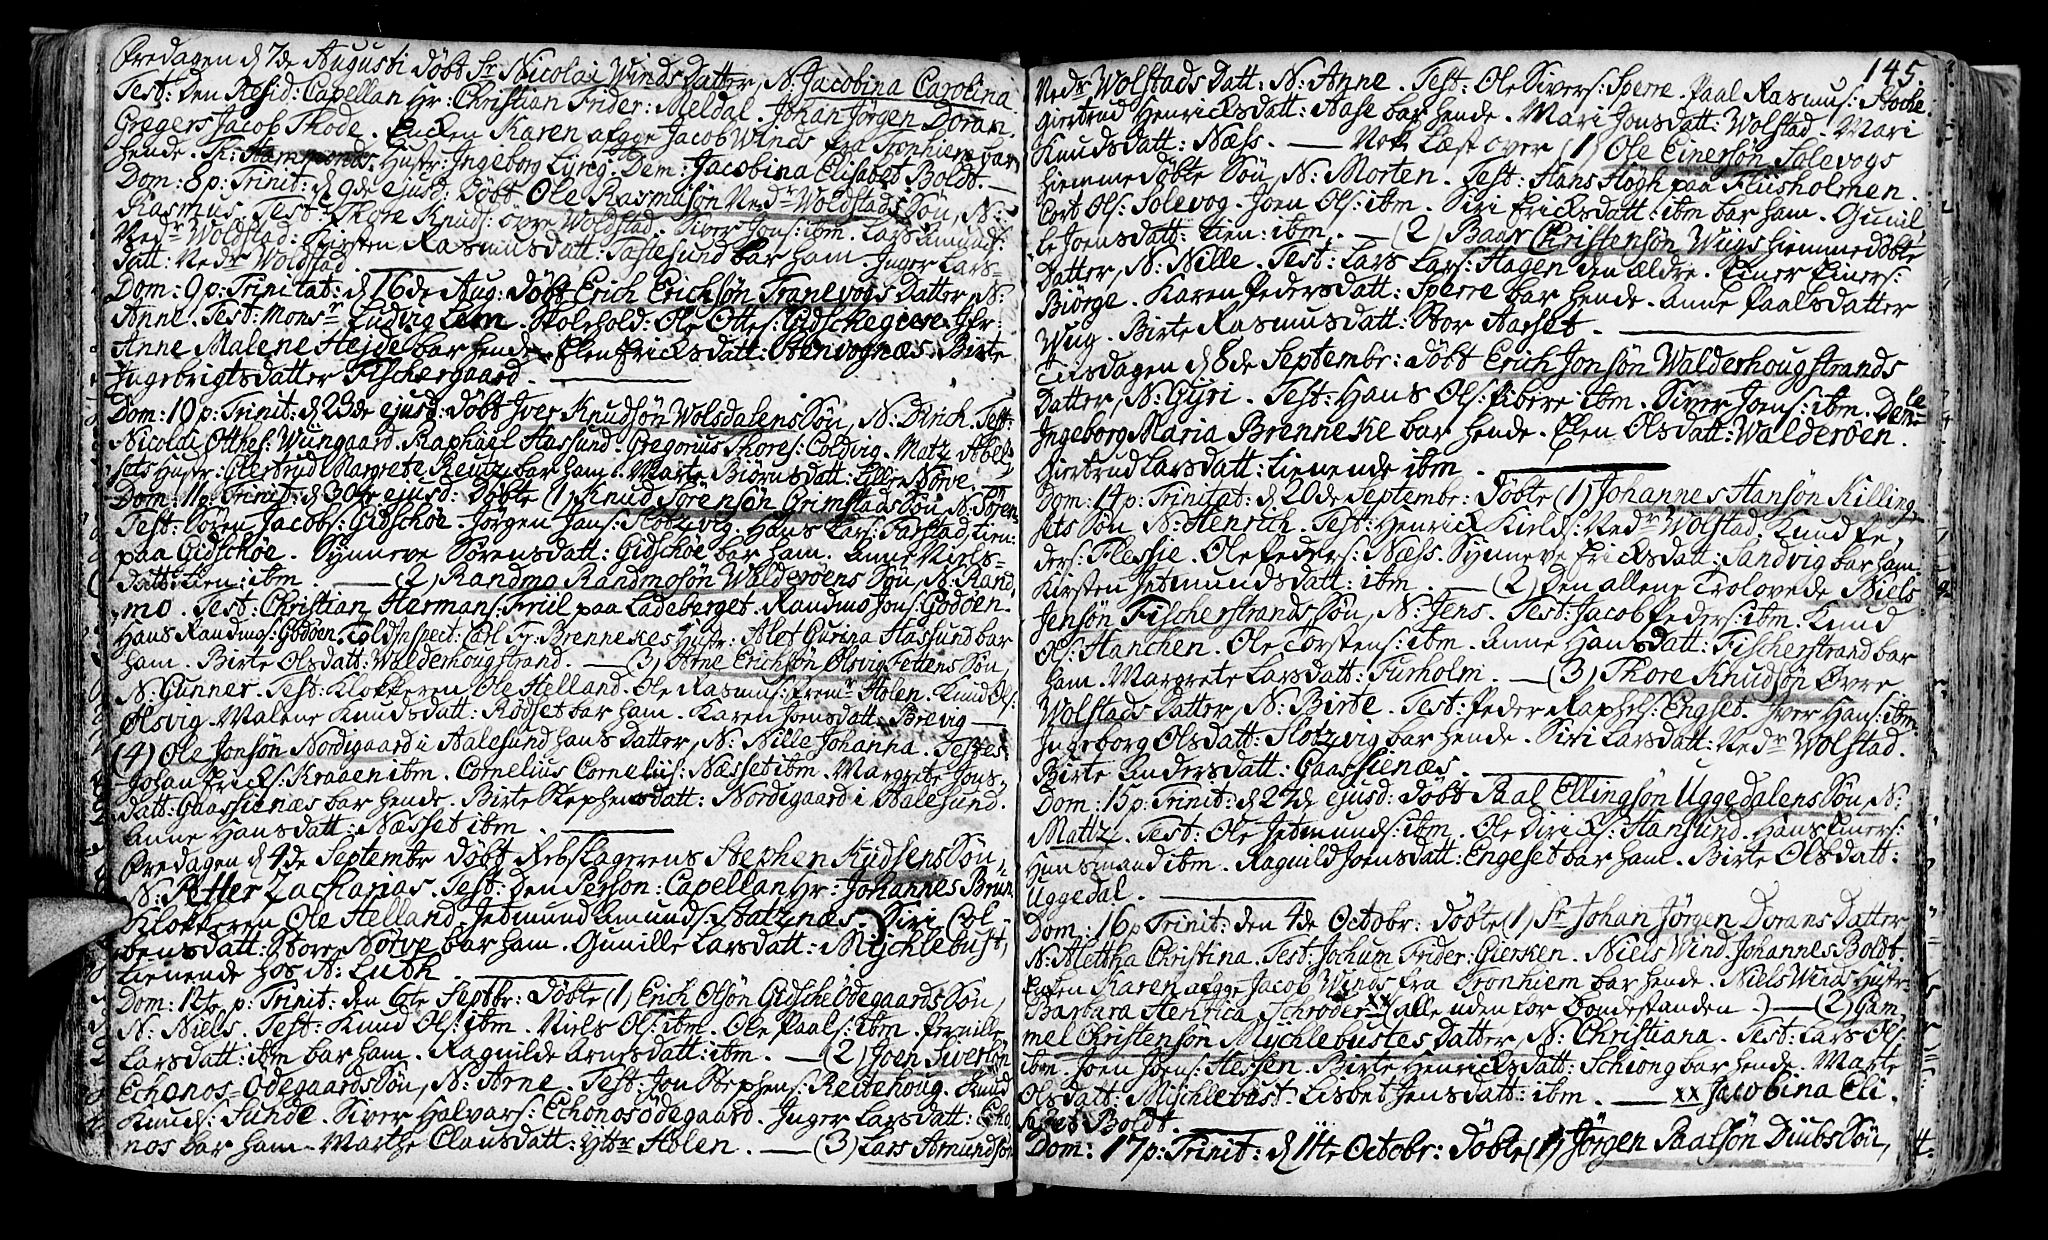 Fredagen d 7de Augusti døbt Sr Nicolai Winds Datter, N: Jacobina Carolina
Test: Den Resid: Capellan Hr: Christian Frider: Meldal. Johan Jørgen Doran.
Gregers Jacob Thode. Encken Karen afgge Jacob Winds fra Tronhiem bar
hende. Hustr: Ingeborg Lyreg. Dem: Jacobina Elisabet Boldt.
Dom: 8 p: Trinit: d 9de ejusd: døbt Ole Rasmusøn Nedr Woldstads Søn, N:
Rasmus. Test: Thore Knuds: øvre Woldstad. Siver Jons: ibm. Lars Amunds:
Nedr Woldstad: Kirsten Rasmusdatt: Tastesund bar ham. Inger Lars-
Datt: Nedr Woldstad.
Dom: 9 p: Trinitat: d 16de Aug: døbt Erich Erichsøn Tranevogs Datter, N:
Anne. Test: Monsr Ludvig Lem. Ole Ottes: Gidschegiere. Jfr:
Anne Malene Hejde bar hende. Elen Ericksdatt: Stenvognæs. Birte
Ingebrigtsdatter Fischergaard.
Dom: 10 p: Trinit: d 23de ejusd: døbt Iver Knudsøn Wolsdalens Søn, N: Dirich. Test:
Nicolai Otthes: Wiingaard. Raphael Hasund. Gregorius Thores: Coldvig. Matz Abel-
sets Hustr: Giertrud Margrete Reutz bar ham. Marte Biørnsdatt: Lille Nørve.
Dom: 11 p: Trinit: d 30te ejusd: døbte (1) Knud Sørensøn Grimstads Søn N: Søren
Test: Søren Jacobs: Gidschøe. Jørgen Jans: Slotzvig. Hans Lars: Tarstad, tien:
paa Gidschøe. Synneve Sørensdatt: Gidschøe bar ham. Anne Niels-
Datt: tien: ibm. (2) Randmo Randmosøn Walderøens Søn, N: Rand,
mo. Test: Christian Hermans: Friil paa Ladeberget. Randmo Jons: Godøen.
Hans Randmos: Godøen. Told Inspect: Carl Fr: Brennekes Hustr: Alet Gurina Hassund bar
ham. Birte Olsdatt: Walderhougstrand. (3) Arne Erichsøn Olsvig Fettens Søn,
N: Gunner. Test: Klokkeren Ole Helland. Ole Rasmus: fremr Holen. Knud Ols:
Olsvig. Malene Knudsdatt: Rødset bar ham. Karen Joensdatt: Brevig
(4) Ole Jonsøn Nordigaard i Aalesund hans Datter, N: Nille Johanna. Testes
Johan Ericks: Kraaen ibm. Cornelius Cornelius: Næsset ibm. Margrete Jons,
datt: Gaassienæs bar hende. Birte Stephensdatt: Nordigaard i Aalesund.
Anne Hansdatt: Næsset ibm.
Fredagen d 4de Septembr døbt Rebslagerens Stephen Kudsens Søn,
N: Petter Zacharias. Test: den Person: Capellan Hr: Johannes Brun.
Klokkeren Ole Helland. Jetmund Amunds: Statznæs. Siri Col
bensdatt: Store Nørve bar ham. Gunille Larsdatt: Mychlebust,
tienende hos N: Luth.
Dom: 12te p: Trinit: den 6te Septbr: døbte (1) Erich Olsøn Gidsche Ødegaards Søn,
N: Niels. Test: Knud Ols: ibm. Niels Ols: ibm. Ole Paals: ibm. Pernille
Larsdatt: ibm bar ham. Ragnilde Arnesdatt: ibm. (2) Joen Siversøn
Echonos-Ødegaards Søn, N: Arne. Test: Jon Stephens: Reitehoug. Knud
Knuds: Sunde. Siver Halvars: Echonosødegaard. Inger Larsdatt: Echo
nos bar ham. Marthe Clausdatt: Yttr Holen. (3) Lars Amundsøn
145.
Nedr Wolstads Datt: N: Anne. Test: Ole Sivers: Sperre. Paal Rasmus:
Giertrud Henricksdatt: Aase bar hende. Mari Jonsdatt: Wolstad. Mari
Knudsdatt: Næss. Nok Læst over (1) Ole Einersøn Solevogs
hiemmedøbte Søn, N: Morten. Test: Hans Høgh paa Fliisholmen.
Cort Ols: Solevog. Joen Ols: ibm. Siri Ericksdatt: ibm bar ham. Gunil,
le Joensdatt: tien: ibm. (2) Baar Christensøn Wiigs hiemmedøbte
Datter, N: Nille. Test: Lars Lars: Hagen den ældre. Einer Einers:
Biørge. Karen Pedersdatt: Sperre bar hende. Anne Paalsdatter
Wug. Birte Rasmusdatt: Stor Aarset.
Tiisdagen d 8de Septembr: døbt Erich Jonsøn Walderhougstrands
Datter, N: Gyri. Test: Hans Ols: ibm. Siver Joens: ibm. Demle
Ingeborg Maria Brenneke bar hende. Elen Olsdatt: Walderøen.
Giertrud Larsdatt: tienende ibm.
Dom: 14 p: Trinitat: d 20de Septembr: døbte (1) Johannes Hansøn Killing,
sets Søn N: Henrich. Test: Henrick Kields: Nedr Wolstad. Knud Pe,
ders: Flessie. Ole Peders: Næss. Synneve Ericksdatt: Sandvig bar ham.
Kirsten Jetmundsdatt: ibm. (2) Den allene Trolovede Niels
Jensøn Fischerstrands Søn, N: Jens. Test: Jacob Peders: ibm. Knud
Ols: Hanchen. Ole Torstens: ibm. Anne Hansdatt: Fischerstrand bar
ham. Margrete Larsdatt: Furholm. (3) Thore Knudsøn Øvre
Wolstads Datter, N: Birte. Test: Peder Raphels: Engset. Iver Hans: ibm.
Ingeborg Olsdatt: Slotzvig bar hende. Siri Larsdatt: Nedr Wolstad.
Birte Andersdatt: Gaassienæs.
Dom: 15 p: Trinit: d 27de ejusd: døbt Paal Ellingsøn Uggedalens Søn, N:
Mattz. Test: Ole Jetmunds: ibm. Ole Diricks: Hansund. Hans Einers:
Huusmand ibm. Ragnild Joensdatt: Engeset bar ham. Birte Olsdatt:
Uggedal.
Dom: 16 p Trinit: den 4de Octobr: døbte (1) Sr Johan Jørgen Dorans Datter
N: Alettha Christina. Test: Jochum Frider: Gierken. Niels Wind. Johannes Boldt.
Encken Karen afgge Jacob Winds fra Tronhiem bar hende. Niels Winds Hustr:
Barbara Henrica Schrøder xx (alle uden for bondestanden.) (2) Gam,
mel Christensøn Mychlebustes Datter, N: Christiana. Test: Lars Ols:
ibm. Joen Joens: Hessen. Birte Henricksdatt: Schiong bar hende. Marte
Olsdatt: Michlebust. Lisbet Jensdatt: ibm. xx Jacobina Eli,
sabet Boldt.
Dom: 17 p: Trinit: d 11te Octobr: døbte (1) Jørgen Paalsøn Diubs Søn,